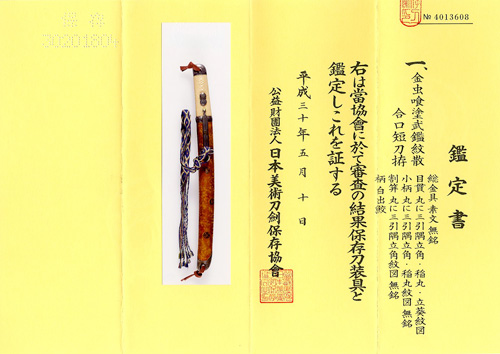 鑑定書
一、金虫喰塗武鑑紋散
合口短刀拵
総金具 素文 無銘
目貫 丸に三引隅立角・稲丸・立葵紋図
小柄 丸に三引隅立角・稲丸紋図 無銘
割笄 丸に三引隅立角紋図 無銘
柄 白出鮫
右は當協會に於て審査の結果保存刀装具と
鑑定しこれを証する
平成三十年五月十日
公益財團法人 日本美術刀劍保存協會
№ 4013608
保存
30201804